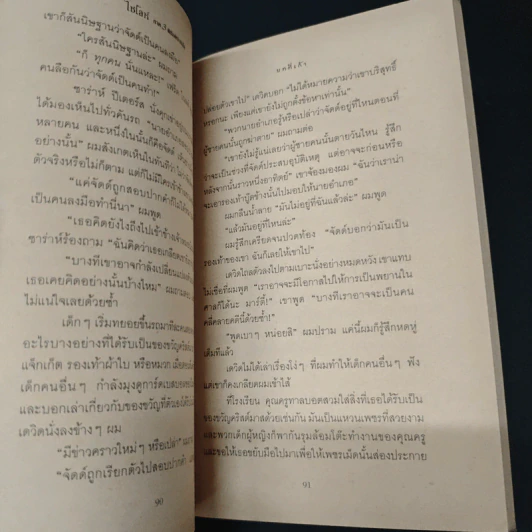 ไซโลก์
เขาก็สันนิษฐานว่าจัดด์เป็นคนลงมือ"
"ใครสันนิษฐานล่ะ" ผมถาม
"ก็ ทุกคน นั่นแหละ!"
คนลือกันว่าจัดด์เป็นคนทำ!"
ซาร่าห์ ปีเตอร์ส
ได้มองเห็นไปทั่วคันรถ
หลายคน และหนึ่งในนั้นก็คือจัดด์
อย่างนั้น" ผมสังเกตเห็นในทันทีว่า
ตัวจริงหรือไม่ก็ตาม แต่ก็ไม่มีใคร
"แต่จัดด์ถูกสอบปากคำก็ไม่ได้
เป็นคนลงมือทำนี่นา" ผมพูด
"เธอคิดยังไงถึงไปเข้าข้าง
ซาร่าห์ร้องถาม "ฉันคิดว่าเธอเกลียด
"บางทีเขาอาจกำลังเปลี่ยนแปลง
เธอเคยคิดอย่างนั้นบ้างไหม" ผมถาม
ไม่แน่ใจเลยด้วยซ้ำ
เด็กๆ เริ่มทยอยขึ้นรถมาทีละคน
อะไรบางอย่างที่ได้รับเป็นของขวัญคริสต์
แจ็กเก็ต รองเท้าผ้าใบ หรือหมวก
เด็กคนอื่นๆ กำลังมุงดูการ์ด
และบอกเล่าเกี่ยวกับของขวัญที่ตัวเองได้
เดวิดนั่งลงข้างๆ ผม
"มีข่าวคราวใหม่ๆ หรือเปล่า"
"จัดด์ถูกเรียกตัวไปสอบปากคำ
90
ปล่อยตัวเขาไป" เดวิดบอก "ไม่ได้หมายความว่าเขาบริสุทธิ์
หรอกนะ เพียงแต่เขายังไม่ถูกตั้งข้อหาเท่านั้น"
"พวกนายอำเภอรู้หรือเปล่าว่าจัดด์อยู่ที่ไหนตอนที่
ผู้ชายคนนั้นถูกฆ่าตาย" ผมถามต่อ
"เขายังไม่รู้แน่เลยว่าผู้ชายคนนั้นตายวันไหน รู้สึก
ว่าจะเป็นช่วงที่จัดด์ประสบอุบัติเหตุ แต่อาจจะก่อนหรือ
หลังจากนั้นราวหนึ่งอาทิตย์" เขาจ้องมองผม "ฉันว่าเราน่า
จะเอารองเท้าบู๊ตข้างนั้นไปมอบให้นายอำเภอ"
ผมกลืนน้ำลาย "มันไม่อยู่ที่ฉันแล้วล่ะ" ผมพูด
"แล้วมันอยู่ที่ไหนล่ะ"
ผมรู้สึกเครียดจนปวดท้อง "จัดด์บอกว่ามันเป็น
รองเท้าของเขา ฉันก็เลยให้เขาไป"
เดวิดไถลตัวลงไปตามเบาะนั่งอย่างหมดหวัง เขาแทบ
ไม่เชื่อที่ผมพูด "เราอาจจะมีโอกาสไปให้การเป็นพยานใน
ศาลก็ได้นะ มาร์ตี้!" เขาพูด "บางทีเราอาจจะเป็นคน
คลี่คลายคดีนี้ด้วยซ้ำ!"
"พูดเบาๆ หน่อยสิ" ผมปราม แค่นี้ผมก็รู้สึกหดหู่
เต็มทีแล้ว
เดวิดไม่ได้เล่าเรื่องโง่ๆ ที่ผมทำให้เด็กคนอื่นๆ ฟัง
แต่เขาก็คงเกลียดผมเข้าไส้
ที่โรงเรียน คุณครูทาลบอตสวมใส่สิ่งที่เธอได้รับเป็น
ของขวัญคริสต์มาสด้วยเช่นกัน มันเป็นแหวนเพชรที่สวยงาม
และพวกเด็กผู้หญิงก็พากันรุมล้อมโต๊ะทำงานของคุณครู
และขอให้เธอขยับมือไปมาเพื่อให้เพชรเม็ดนั้นส่องประกาย
91